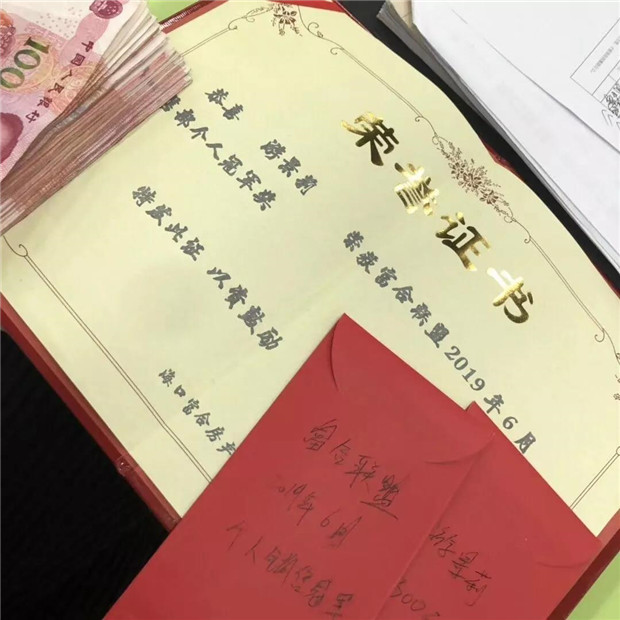 100
中国人民银行
荣誉证书
恭喜 游景莉 荣获富合联盟2019年6月
部个人冠军奖
特发此证 以资鼓励
海口富合房产
富合联盟
2019年6月
个人冠军
游景莉